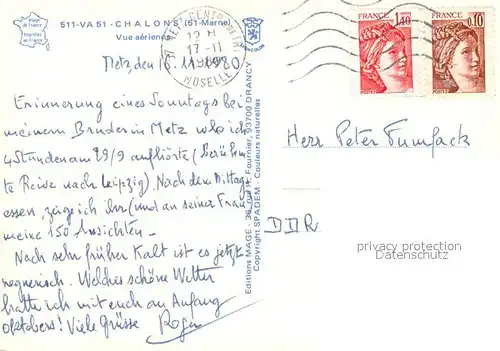 Image de France
Imprimée en France
511-VA 51 - CHALONS (51-Marne)
Vue aérienne
METZ CENTRE DE TRI
12 H
17-11
1980
MOSELLE
FRANCE
1,40
FRANCE
0,10
Metz den 16. 11. 1980
Erinnerung eines Sonntags bei
meinem Bruder in Metz wo ich
4 Stunden am 29/9 aufhörte (berühm-
te Reise nach Leipzig). Nach dem Mittag
essen, zeige ich ihr (und an seiner Frau
meine 150 Ansichten –
Nach sehr früher Kalt ist es jetzt
regnerisch. Welches schöne Wetter
hatte ich mit euch am Anfang
Oktobers! Viele Grüsse Roger
Editions MAGE - 36, rue H. Fournier, 93700 DRANCY
Copyright SPADEM - Couleurs naturelles
Herr Peter Tumfack
DDR
privacy protection
Datenschutz